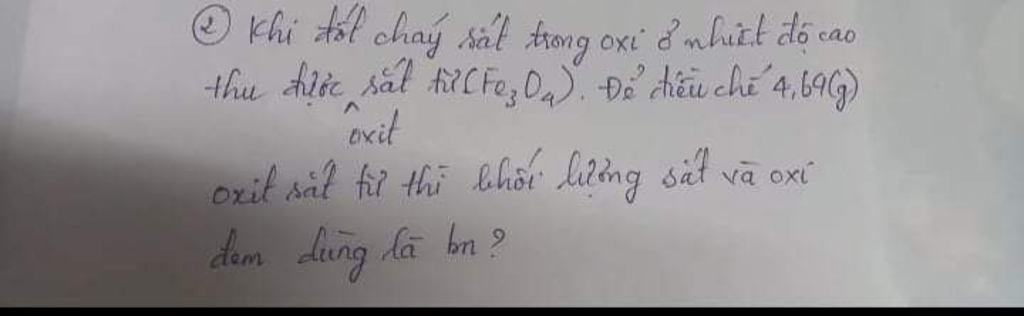 ② Khi đốt cháy sắt trong oxi ở nhiệt độ cao
thu được oxit sắt từ (Fe₃O₄). Để điều chế 4,69(g)
oxit sắt từ thì khối lượng sắt và oxi
đem dùng là bn?